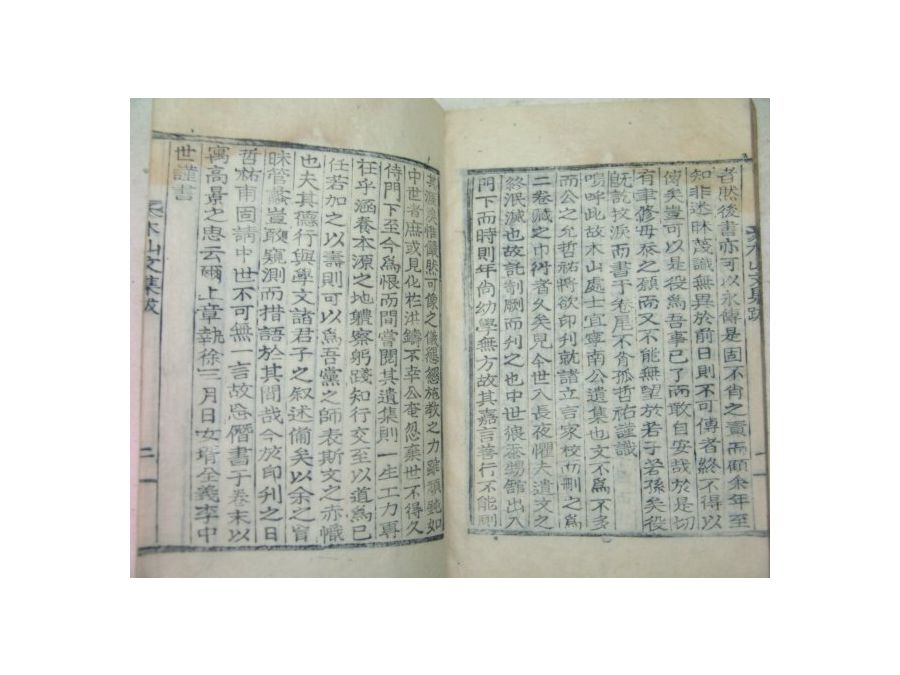 者然後書亦可以永傳是固不肖之責而顧余年至
知非迷昧茂識無異於前日則不可傳者終不得以
傳矣豈可以是役爲吾事已了而敢自安哉於是切
有聿修毋忝之頌而又不能無望於若子若孫矣役
旣訖抆淚而書于卷尾不肖孤哲祐謹識
嗚呼此故木山處士宜寧南公遺集也文不爲不多
而公之允哲祐將欲印刊就諸立言家校而刪之爲
二卷藏之巾衍者久矣見今世入長夜懼夫遺文之
終泯滅也故託剞劂而刊之也中世猥忝甥館出入
門下而時則年尚幼學無方故其嘉言善行不能刻
其淵
可像之儀
施教之力雖頑鈍如
中世者庶或見化於洪鑄不幸公奄忽棄世不得久
侍門下至今爲恨而間嘗閱其遺集則一生工力專
在乎涵養本源之地體察躬踐知行交至以道爲己
任若加之以壽則可以爲吾黨之師表斯文之赤幟
也夫其德行與學文諸君子之叙述備矣以余之盲
昧管蠡豈敢窺測而措語於其間哉今於印刊之日
哲祐甫固請中世不可無一言故忘僭書于卷末以
寓高景之惠云爾上章執徐三月日女壻全義李中
世謹書
木山文集跋
二
木山文集跋